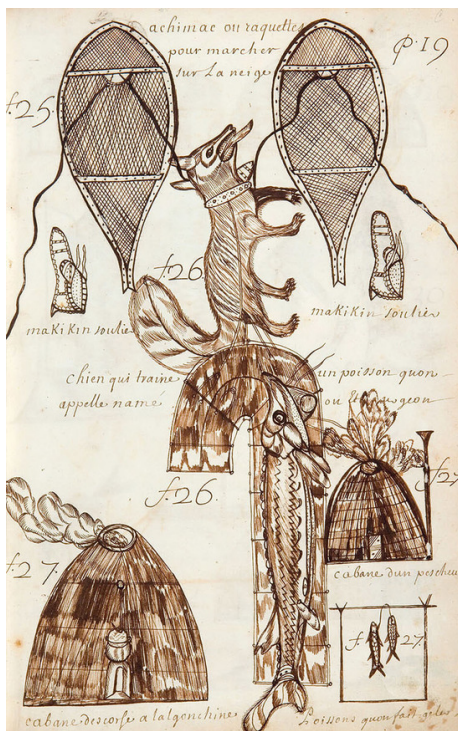 achimac ou raquettes
pour marcher
sur La neige
p. 19
f. 25.
f. 26.
makikin soulier
makikin soulier
chien qui traine
un poisson quon
appelle namé
ou
f. 26.
f. 27
cabane dun pescheur
f. 27.
f. 27.
cabane descorse a lalgonchine
Poissons quon fait geler